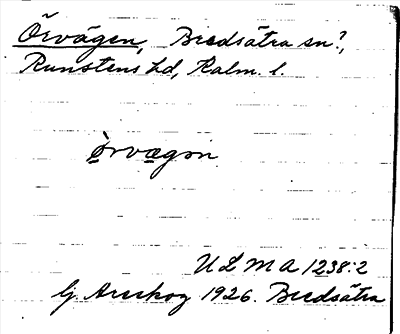 Örvägen, Bredsätra sn?,
Runstens hd, Kalm. l.
òrvægən
ULMA 1238:2
Gj. Areskog 1926. Bredsätra